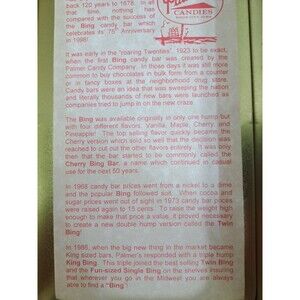 back 120 years to 1878. In all
that time, nothing has
compared with the success of
the Bing candy bar which
celebrates its 75th Anniversary
in 1998!
Palmer
CANDIES
It was early in the "roaring Twenties", 1923 to be exact,
when the first Bing candy bar was created by the
Palmer Candy Company. In those days it was still more
common to buy chocolates in bulk form from a counter
or in fancy boxes at the neighborhood drug store.
Candy bars were an idea that was sweeping the nation
and literally thousands of new bars were launched as
companies tried to jump in on the new craze.
The Bing was available originally in only one hump but
with four different flavors, Vanilla, Maple, Cherry and
Pineapple! The top selling flavor quickly became the
Cherry version which sold so well that the decision was
reached to cut out the other flavors entirely. It was only
then that the bar started to be commonly called the
Cherry Bing Bar, a name which continued in use
for the next 50 years.
In 1968 candy bar prices went from a nickel to a dime
and the popular Bing followed suit. When cocoa and
sugar prices went out of sight in 1973 candy bar prices
were raised again to 15 cents. To raise the weight high
enough to make that price a value, it proved necessary
to create a new double hump version called the Twin
Bing!
In 1986, when the big new thing in the market became
King sized bars, Palmer's responded with a triple hump
King Bing. This triple joined the best selling Twin Bing
and the Fun-sized Single Bing on the shelves insuring
that wherever you go in the Midwest you are always
able to find a "Bing"!